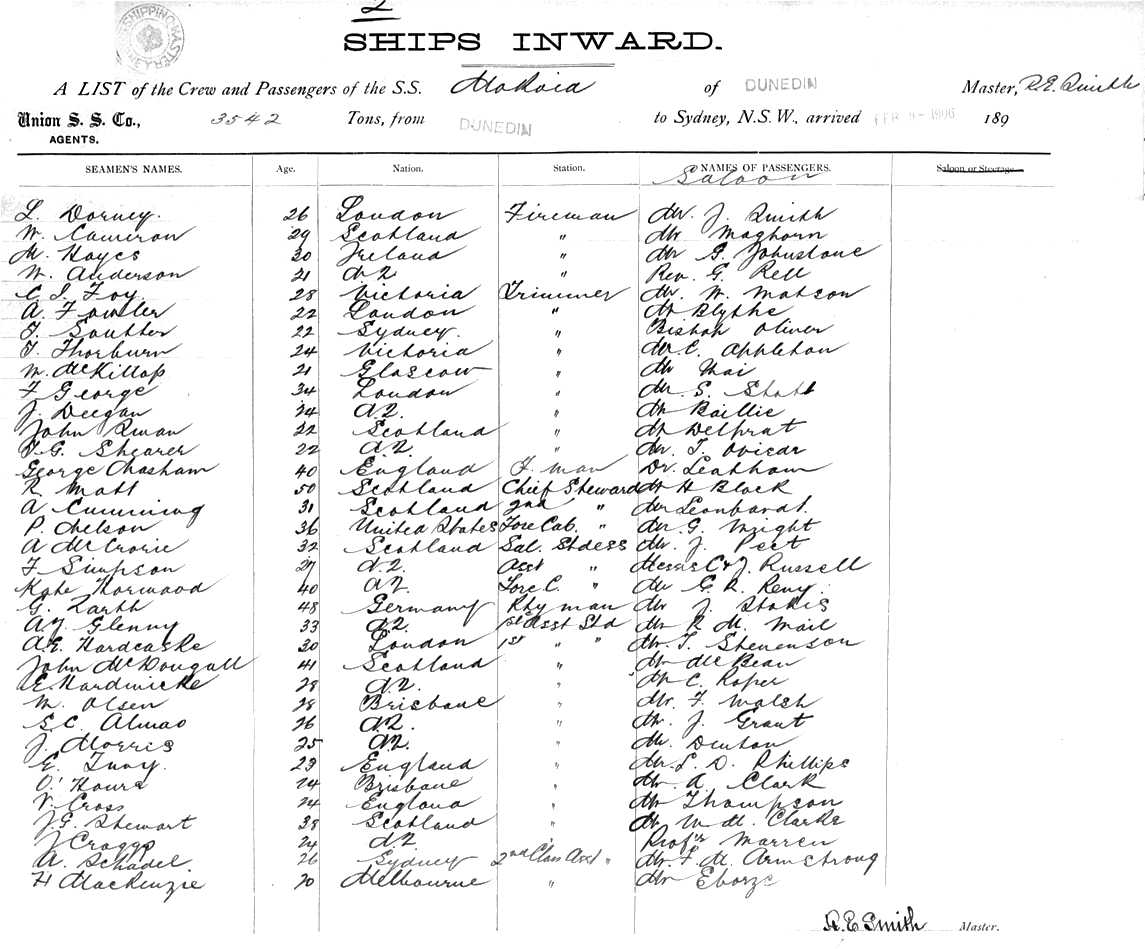 2
SHIPS INWARD.
A LIST of the Crew and Passengers of the S.S. Mokoia of DUNEDIN Master, R.E. Smith
Union S. S. Co., 3542 Tons, from DUNEDIN to Sydney, N.S.W., arrived FEB 1906 189
AGENTS.
SEAMEN'S NAMES. Age. Nation. Station. NAMES OF PASSENGERS. Saloon or Steerage
Saloon
L. Dorney. 26 London Fireman Mr. J. Smith
W. Cameron 29 Scotland " Mr Maghorn
M. Hayes 30 Ireland " Mr G. Johnstone
W. Anderson 21 NZ " Rev. G. Rell
C I. Foy 28 Victoria Trimmer Mr. W. Matson
A. Fowler 22 London " Mr Blythe
T. Soutter 22 Sydney. " Bishop Oliver
T. Thorburn 24 Victoria " Mr C. Appleton
W. McKillop 21 Glascow " Mr Mai
F George 34 London " Mr. S. Stott
J. Deegan 24 N.Z. " Mr Baillie
John Swan 22 Scotland " Mr Delprat
G. Shearer 22 N.Z. " Mr. T.
George Chasham 40 England F. man Dr. Leatham
R Matt 50 Scotland Chief Steward Mr H Block
A Cumming 31 Scotland 2nd " Mr Leonhardt.
P. Nelson 36 United States Fore Cab. " Mr G. Wright
A McCrorie 32 Scotland Sal. Stdess Mr. J. Peet
F Simpson 27 N.Z. Asst " Messrs C & J. Russell
Kate Horwood 40 NZ Fore C. " Mr G. R. Reny.
G. Zarth 48 Germany Pty man Mr J. Stokis
A.J. Glenny 33 NZ. 1st Asst Std Mr R. M. Mail
A.E. Hardcaske 30 London 1st " " Mr. T. Stevenson
John McDougall 41 Scotland " Mr McBean
E. Hardwicke 28 N.Z. " Mr C. Roper
M. Olsen 28 Brisbane " Mr. F. Walsh
S.C. Almao 26 N.Z. " Mr. J. Grant
J. Morris 25 N.Z. " Mr. Denton
E. 23 England " Mr. L. D. Phillips
O' Hours 24 Brisbane " Mr. A. Clark
V. Cross 24 England " Mr Thompson
J.G. Stewart 38 Scotland " Mr W. M. Clarke
J Craggs 24 N.Z. " Profsr Warren
A. Schadel. 26 Sydney 2nd Class Asst " Mr. F. M. Armstrong
H Mackenzie 20 Melbourne " Mr Eborze
R.E Smith Master.